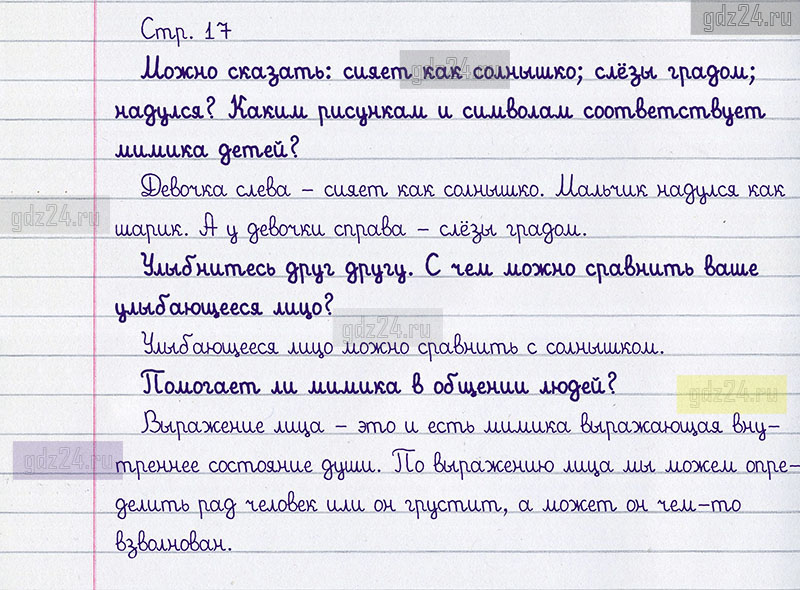 gdz24.ru
Стр. 17
Можно сказать: сияет как солнышко; слёзы градом;
gdz24.ru
надулся? Каким рисункам и символам соответствует
мимика детей?
Девочка слева – сияет как солнышко. Мальчик надулся как
gdz24.ru
шарик. А у девочки справа – слёзы градом.
Улыбнитесь друг другу. С чем можно сравнить ваше
улыбающееся лицо?
gdz24.ru
Улыбающееся лицо можно сравнить с солнышком.
Помогает ли мимика в общении людей?
gdz24.ru
Выражение лица – это и есть мимика выражающая вну-
gdz24.ru
треннее состояние души. По выражению лица мы можем опре-
делить рад человек или он грустит, а может он чем-то
взволнован.